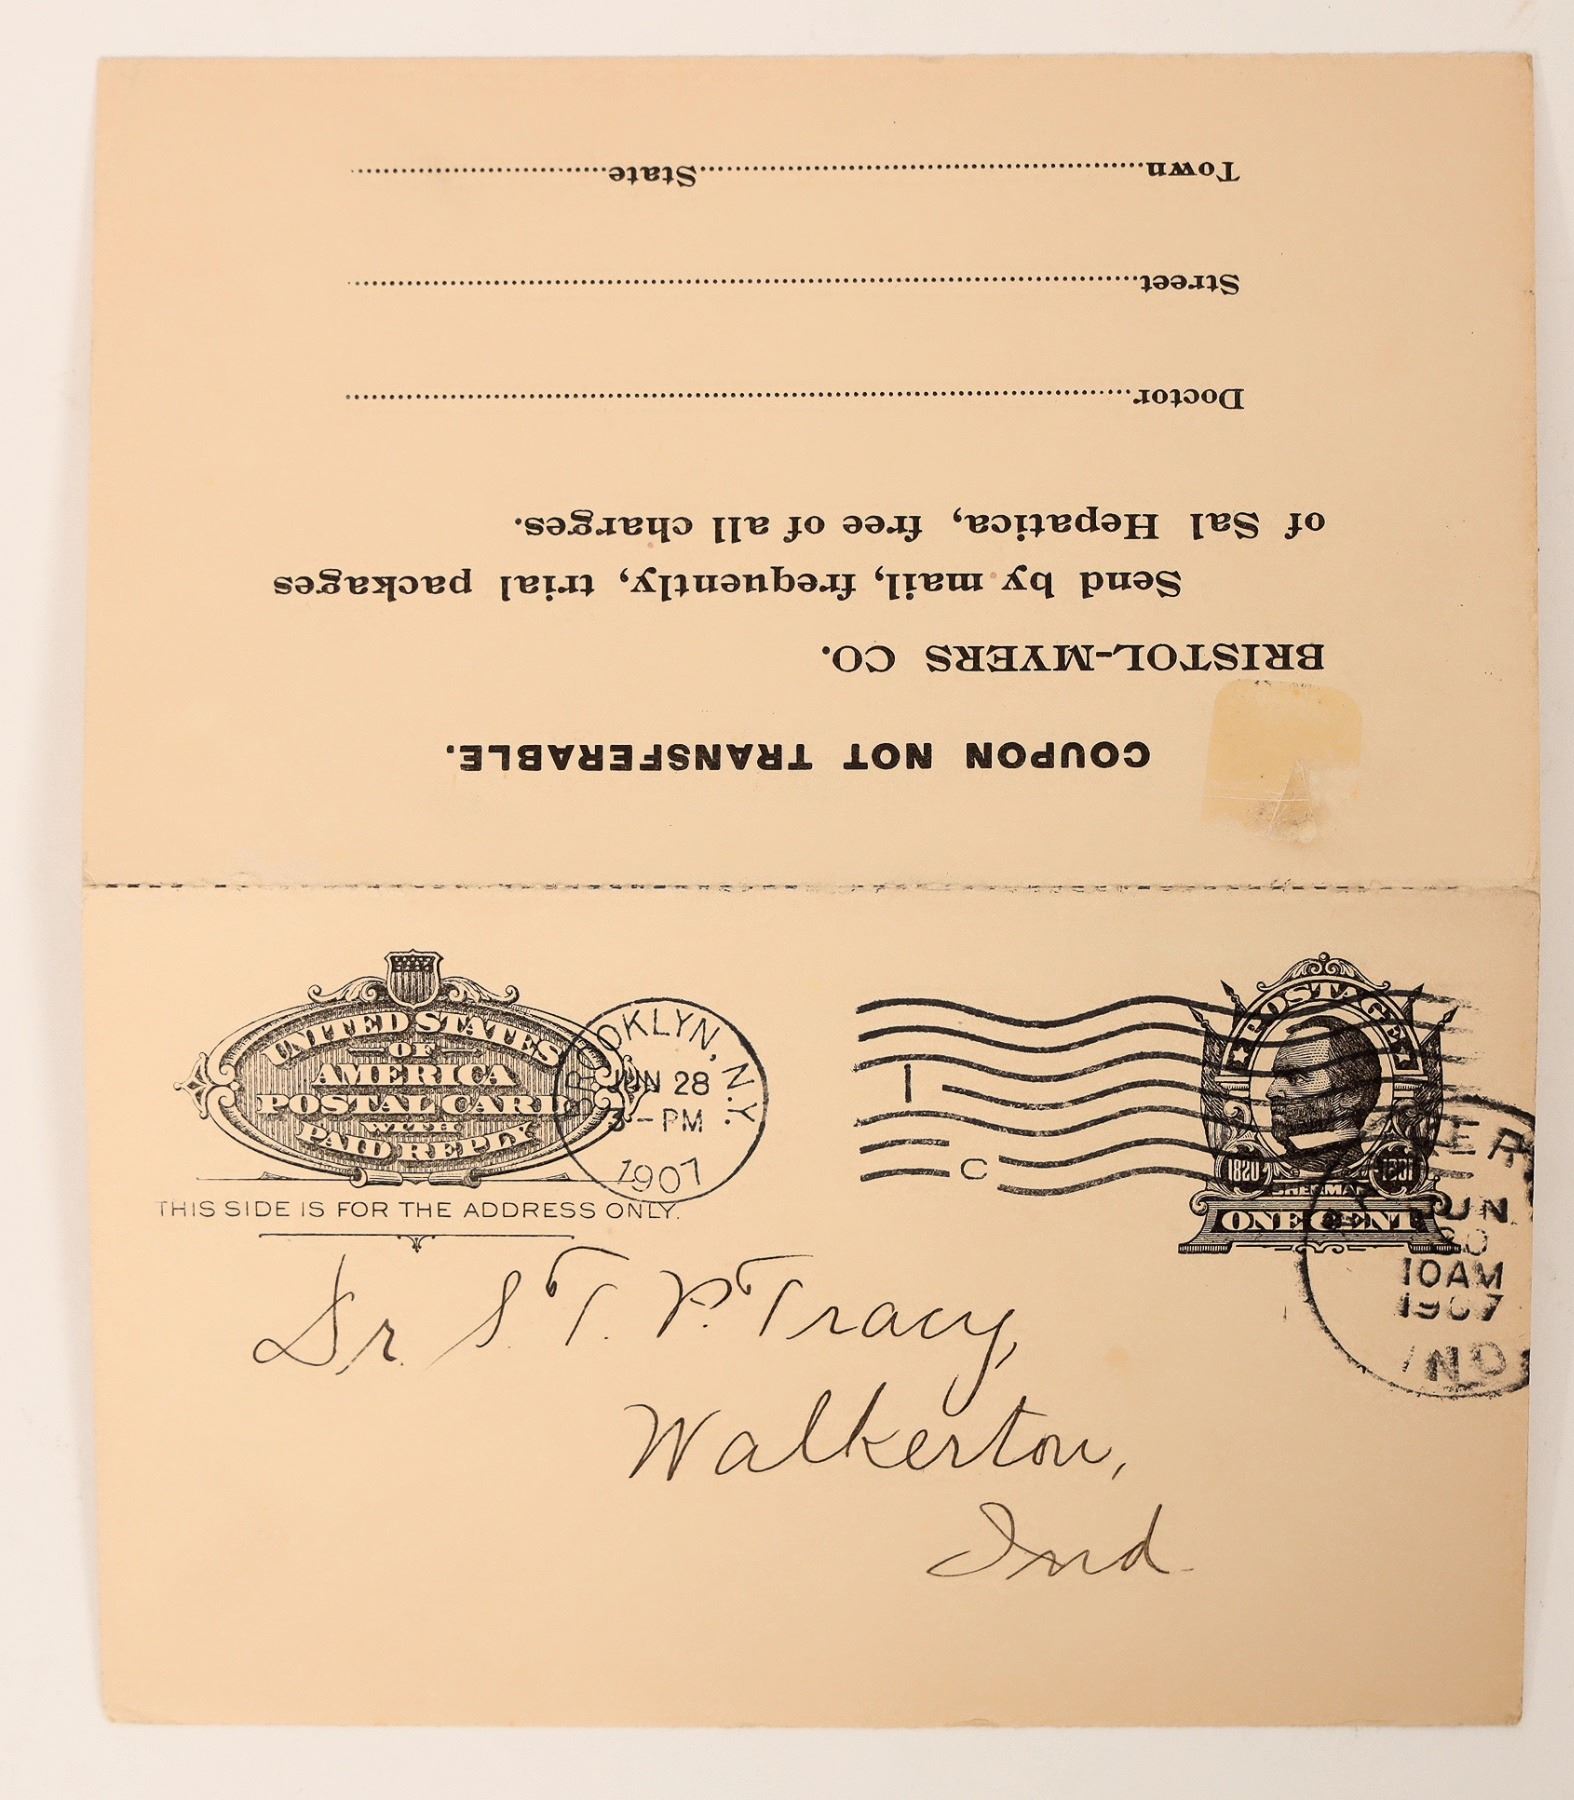 COUPON NOT TRANSFERABLE.
BRISTOL-MYERS CO.
Send by mail, frequently, trial packages
of Sal Hepatica, free of all charges.
Doctor
Street
Town State
UNITED STATES
OF
AMERICA
POSTAL CARD
WITH
PAID REPLY
THIS SIDE IS FOR THE ADDRESS ONLY.
BROOKLYN, N.Y.
JUN 28
3-PM
1907
1
C
POSTAGE
1820 1891
SHERMAN
ONE CENT
JUN
10AM
1907
IND
Dr. S. T. P. Tracy,
Walkerton,
Ind.